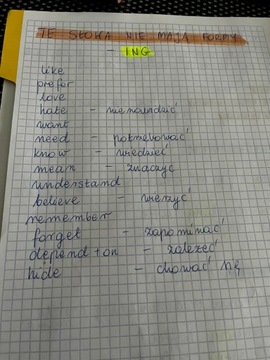 TE SŁOWA NIE MAJĄ FORMY
- ING
like
prefer
love
hate - nienawidzić
want
need - potrzebować
know - wiedzieć
mean - znaczyć
understand
believe - wierzyć
remember
forget - zapominać
depend + on - zależeć
hide - chować się